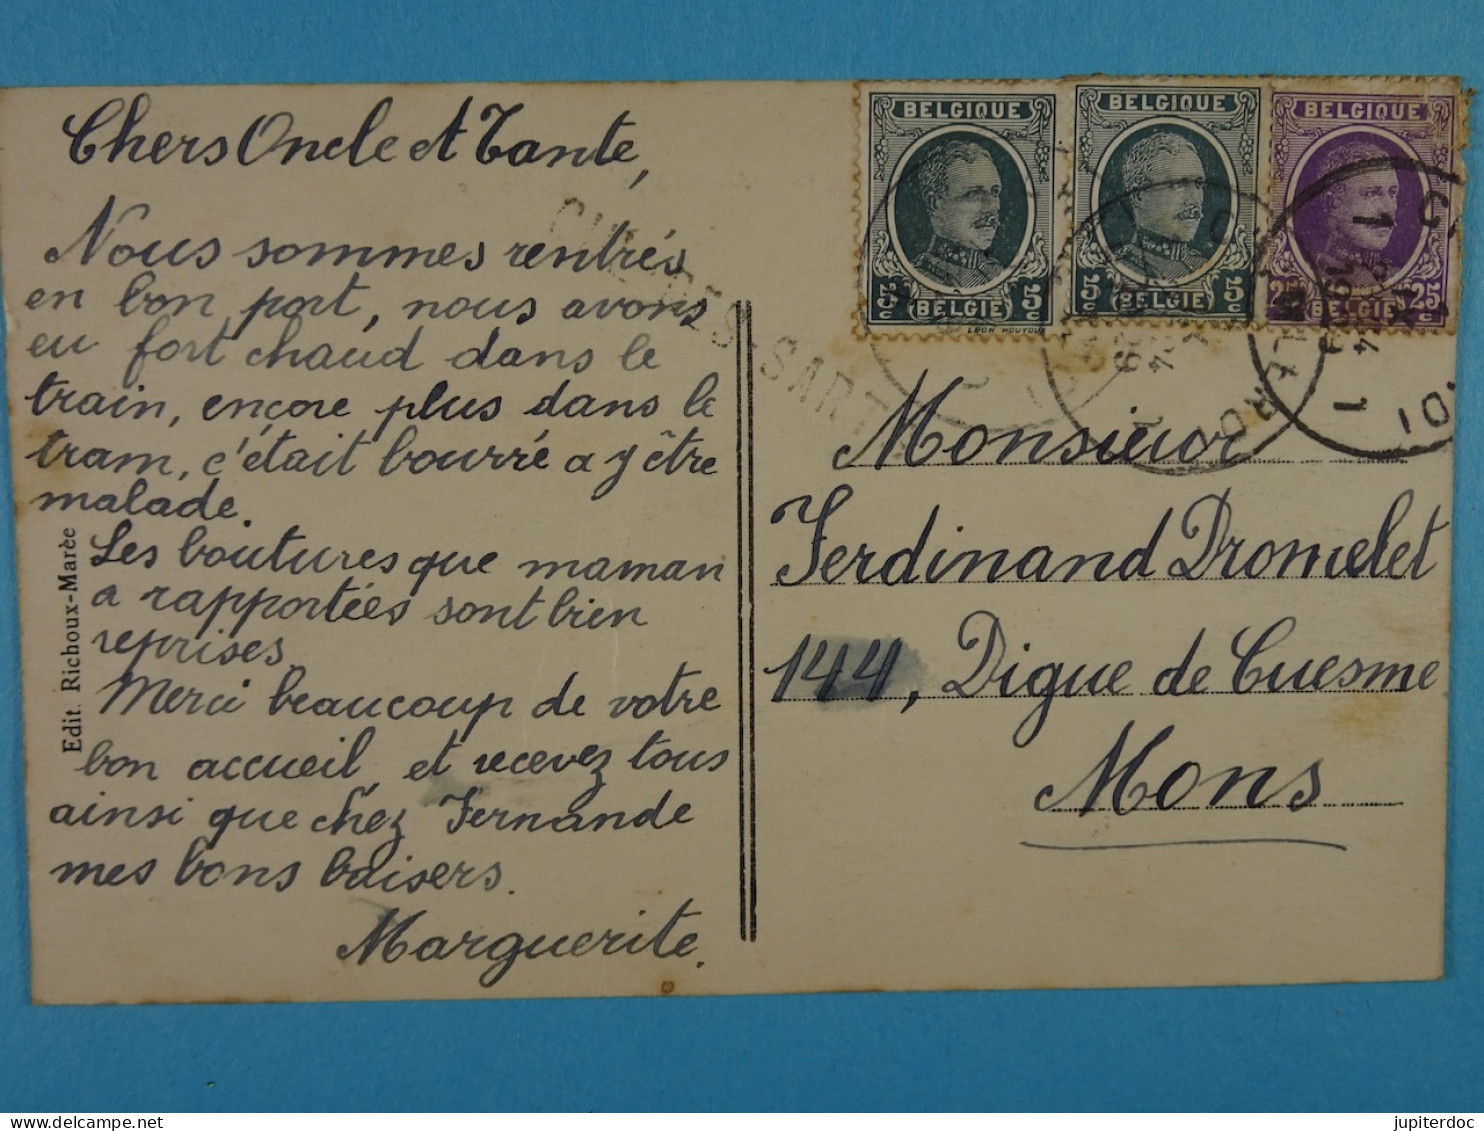 Chers Oncle et Tante,
Nous sommes rentrés
en bon port, nous avons
eu fort chaud dans le
train, encore plus dans le
tram, c'était bourré a y être
malade.
Les boutures que maman
a rapportées sont bien
reprises.
Merci beaucoup de votre
bon accueil, et recevez tous
ainsi que chez Fernande
mes bons baisers.
Marguerite.
Edit. Richoux-Marèe
BELGIQUE
5c 5c
BELGIE
LEON HOUYOUX
BELGIQUE
5c 5c
BELGIE
BELGIQUE
25 25
BELGIE
Monsieur
Ferdinand Dromelet
144, Digue de Cuesme
Mons
jupiterdoc